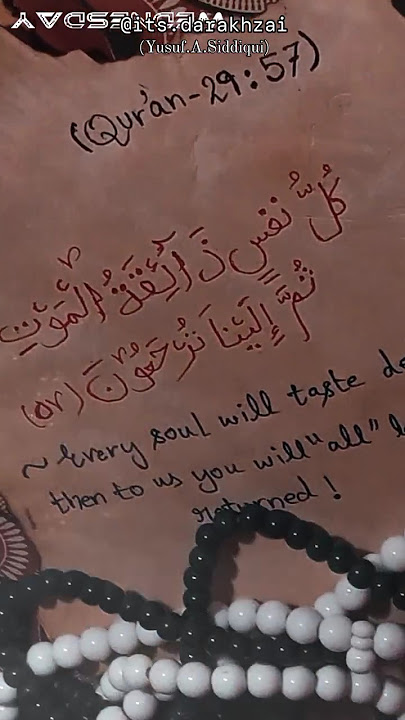 WEDNESDAY
@its.darakhzai
(Yusuf.A.Siddiqui)
(Qur'an-29:57)
كُلُّ نَفْسٍ ذَآئِقَةُ الْمَوْتِ
ثُمَّ إِلَيْنَا تُرْجَعُونَ (٥٧)
~ Every soul will taste de
then to us you will "all" b
returned!